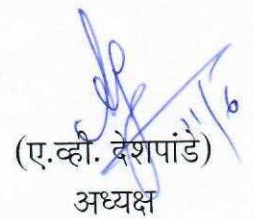 11/6
(ए.व्ही. देशपांडे)
अध्यक्ष